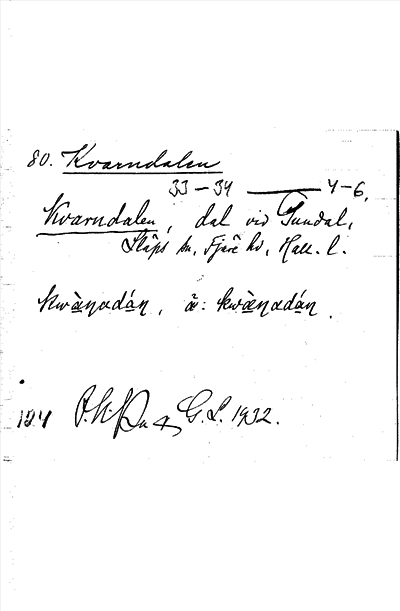 80. Kvarndalen
33–34 — 4–6.
Kvarndalen, dal vid Tundal,
Släps sn, Fjäre hd, Hall. l.
kwànadán, ä: kwænadán.
124 G. L. 1932.